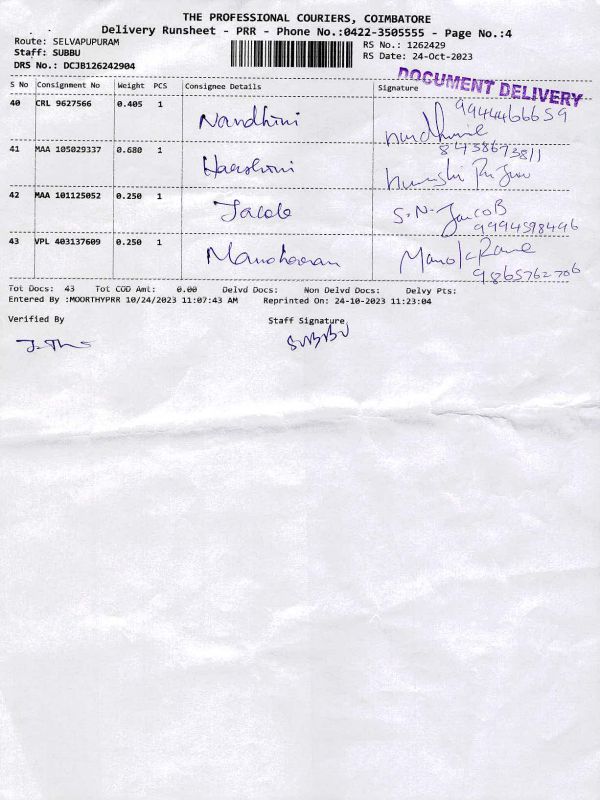 THE PROFESSIONAL COURIERS, COIMBATORE
Delivery Runsheet - PRR - Phone No.:0422-3505555 - Page No.:4
Route: SELVAPUPURAM
Staff: SUBBU
DRS No.: DCJB126242904
RS No.: 1262429
RS Date: 24-Oct-2023
DOCUMENT DELIVERY
S No Consignment No Weight PCS Consignee Details Signature
40 CRL 9627566 0.405 1 Nandhini 9944466659
41 MAA 105029337 0.680 1 Harshini 8438673811
42 MAA 101125052 0.250 1 Jacob S.N. Jacob 9994598496
43 VPL 403137609 0.250 1 Manoharan 9865762706
Tot Docs: 43 Tot COD Amt: 0.00 Delvd Docs: Non Delvd Docs: Delvy Pts:
Entered By :MOORTHYPRR 10/24/2023 11:07:43 AM Reprinted On: 24-10-2023 11:23:04
Verified By Staff Signature
SUBBU